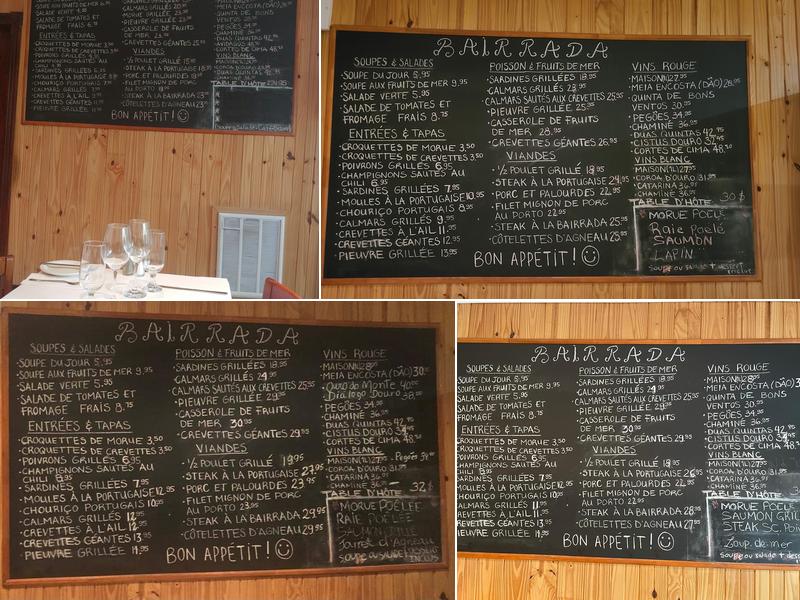 SALADE VERTE
SALADE DE TOMATES ET
FROMAGE FRAIS
ENTRÉES & TAPAS
CROQUETTES DE MORUE
CROQUETTES DE CREVETTES
CALMARS GRILLÉS
PIEUVRE GRILLÉE
CASSEROLE DE FRUITS
DE MER
CREVETTES GÉANTES
VIANDES
½ POULET GRILLÉ
STEAK À LA PORTUGAISE
PORC ET PALOURDES
FILET MIGNON DE PORC
AU PORTO
STEAK À LA BAIRRADA
CÔTELETTES D'AGNEAU
BON APPÉTIT!
MEIA ENCOSTA (DÃO)
QUINTA DE BONS
VENTOS
VINS BLANC
TABLE D'HÔTE
BAIRRADA
SOUPES & SALADES
SOUPE DU JOUR 5.95
SOUPE AUX FRUITS DE MER 9.95
SALADE VERTE 5.95
SALADE DE TOMATES ET
FROMAGE FRAIS 8.75
ENTRÉES & TAPAS
CROQUETTES DE MORUE 3.50
CROQUETTES DE CREVETTES 3.50
POIVRONS GRILLÉS 6.95
CHAMPIGNONS SAUTÉS AU
CHILI 6.95
SARDINES GRILLÉES 7.95
MOULES À LA PORTUGAISE 10.95
CHOURIÇO PORTUGAIS 8.95
CALMARS GRILLÉS 9.95
CREVETTES À L'AIL 11.95
CREVETTES GÉANTES 12.95
PIEUVRE GRILLÉE 13.95
POISSON & FRUITS DE MER
SARDINES GRILLÉES 18.95
CALMARS GRILLÉS 23.95
CALMARS SAUTÉS AUX CREVETTES 25.95
PIEUVRE GRILLÉE 25.95
CASSEROLE DE FRUITS
DE MER 28.95
CREVETTES GÉANTES 26.95
VIANDES
½ POULET GRILLÉ 18.95
STEAK À LA PORTUGAISE 24.95
PORC ET PALOURDES 22.95
FILET MIGNON DE PORC
AU PORTO 22.95
STEAK À LA BAIRRADA 25.95
CÔTELETTES D'AGNEAU 25.95
BON APPÉTIT!
VINS ROUGE
MAISON
MEIA ENCOSTA (DÃO) 28.95
QUINTA DE BONS
VENTOS 30.95
PEGÕES 34.95
CHAMINÉ 36.95
DUAS QUINTAS 42.95
CISTUS DOURO
CORTES DE CIMA 48.50
VINS BLANC
MAISON
COROA D'OURO 31.95
CATARINA 36.95
CHAMINÉ 36.95
TABLE D'HÔTE 30$
MORUE POÊLÉ
Raie Poêlé
SAUMON
LAPIN
soupe ou salade + dessert
inclus
BAIRRADA
SOUPES & SALADES
SOUPE DU JOUR 5.95
SOUPE AUX FRUITS DE MER 9.95
SALADE VERTE 5.95
SALADE DE TOMATES ET
FROMAGE FRAIS 8.75
ENTRÉES & TAPAS
CROQUETTES DE MORUE 3.50
CROQUETTES DE CREVETTES 3.50
POIVRONS GRILLÉS 6.95
CHAMPIGNONS SAUTÉS AU
CHILI 8.95
SARDINES GRILLÉES 7.95
MOULES À LA PORTUGAISE 12.95
CHOURIÇO PORTUGAIS 10.95
CALMARS GRILLÉS
CREVETTES À L'AIL
CREVETTES GÉANTES 13.95
PIEUVRE GRILLÉE 14.95
POISSON & FRUITS DE MER
SARDINES GRILLÉES 18.95
CALMARS GRILLÉS 24.95
CALMARS SAUTÉS AUX CREVETTES 25.95
PIEUVRE GRILLÉE 29.95
CASSEROLE DE FRUITS
DE MER 30.95
CREVETTES GÉANTES 29.95
VIANDES
½ POULET GRILLÉ 19.95
STEAK À LA PORTUGAISE 27.95
PORC ET PALOURDES 23.95
FILET MIGNON DE PORC
AU PORTO 23.95
STEAK À LA BAIRRADA 29.95
CÔTELETTES D'AGNEAU 29.95
BON APPÉTIT!
VINS ROUGE
MAISON
MEIA ENCOSTA (DÃO)
PEGÕES 34.95
CHAMINÉ 36.95
DUAS QUINTAS 42.95
CISTUS DOURO
CORTES DE CIMA 48.50
VINS BLANC
MAISON
COROA D'OURO 31.95
CATARINA 36.95
CHAMINÉ 36.95
TABLE D'HÔTE 32$
MORUE POÊLÉE
RAIE POÊLÉE
BAIRRADA
SOUPES & SALADES
SOUPE DU JOUR 5.95
SOUPE AUX FRUITS DE MER 9.95
SALADE VERTE 5.95
SALADE DE TOMATES ET
FROMAGE FRAIS 8.75
ENTRÉES & TAPAS
CROQUETTES DE MORUE 3.50
CROQUETTES DE CREVETTES 3.50
POIVRONS GRILLÉS 6.95
CHAMPIGNONS SAUTÉS AU
CHILI
SARDINES GRILLÉES 7.95
MOULES À LA PORTUGAISE 12.95
CHOURIÇO PORTUGAIS 10.95
CALMARS GRILLÉS
CREVETTES À L'AIL
CREVETTES GÉANTES 13.95
PIEUVRE GRILLÉE 14.95
POISSON & FRUITS DE MER
SARDINES GRILLÉES 18.95
CALMARS GRILLÉS 24.95
CALMARS SAUTÉS AUX CREVETTES 25.95
PIEUVRE GRILLÉE 29.95
CASSEROLE DE FRUITS
DE MER 30.95
CREVETTES GÉANTES 29.95
VIANDES
½ POULET GRILLÉ 18.95
STEAK À LA PORTUGAISE 26.95
PORC ET PALOURDES 22.95
FILET MIGNON DE PORC
AU PORTO 22.95
STEAK À LA BAIRRADA 28.95
CÔTELETTES D'AGNEAU 27.95
BON APPÉTIT!
VINS ROUGE
MAISON
MEIA ENCOSTA (DÃO)
QUINTA DE BONS
VENTOS 30.95
PEGÕES 34.95
CHAMINÉ 36.95
DUAS QUINTAS 42.95
CISTUS DOURO
CORTES DE CIMA 48
VINS BLANC
MAISON
COROA D'OURO 31.95
CATARINA 36.95
CHAMINÉ 36.95
TABLE D'HÔTE
MORUE POÊLÉ
SAUMON
STEAK
Zoup de mer
soupe ou salade + dess